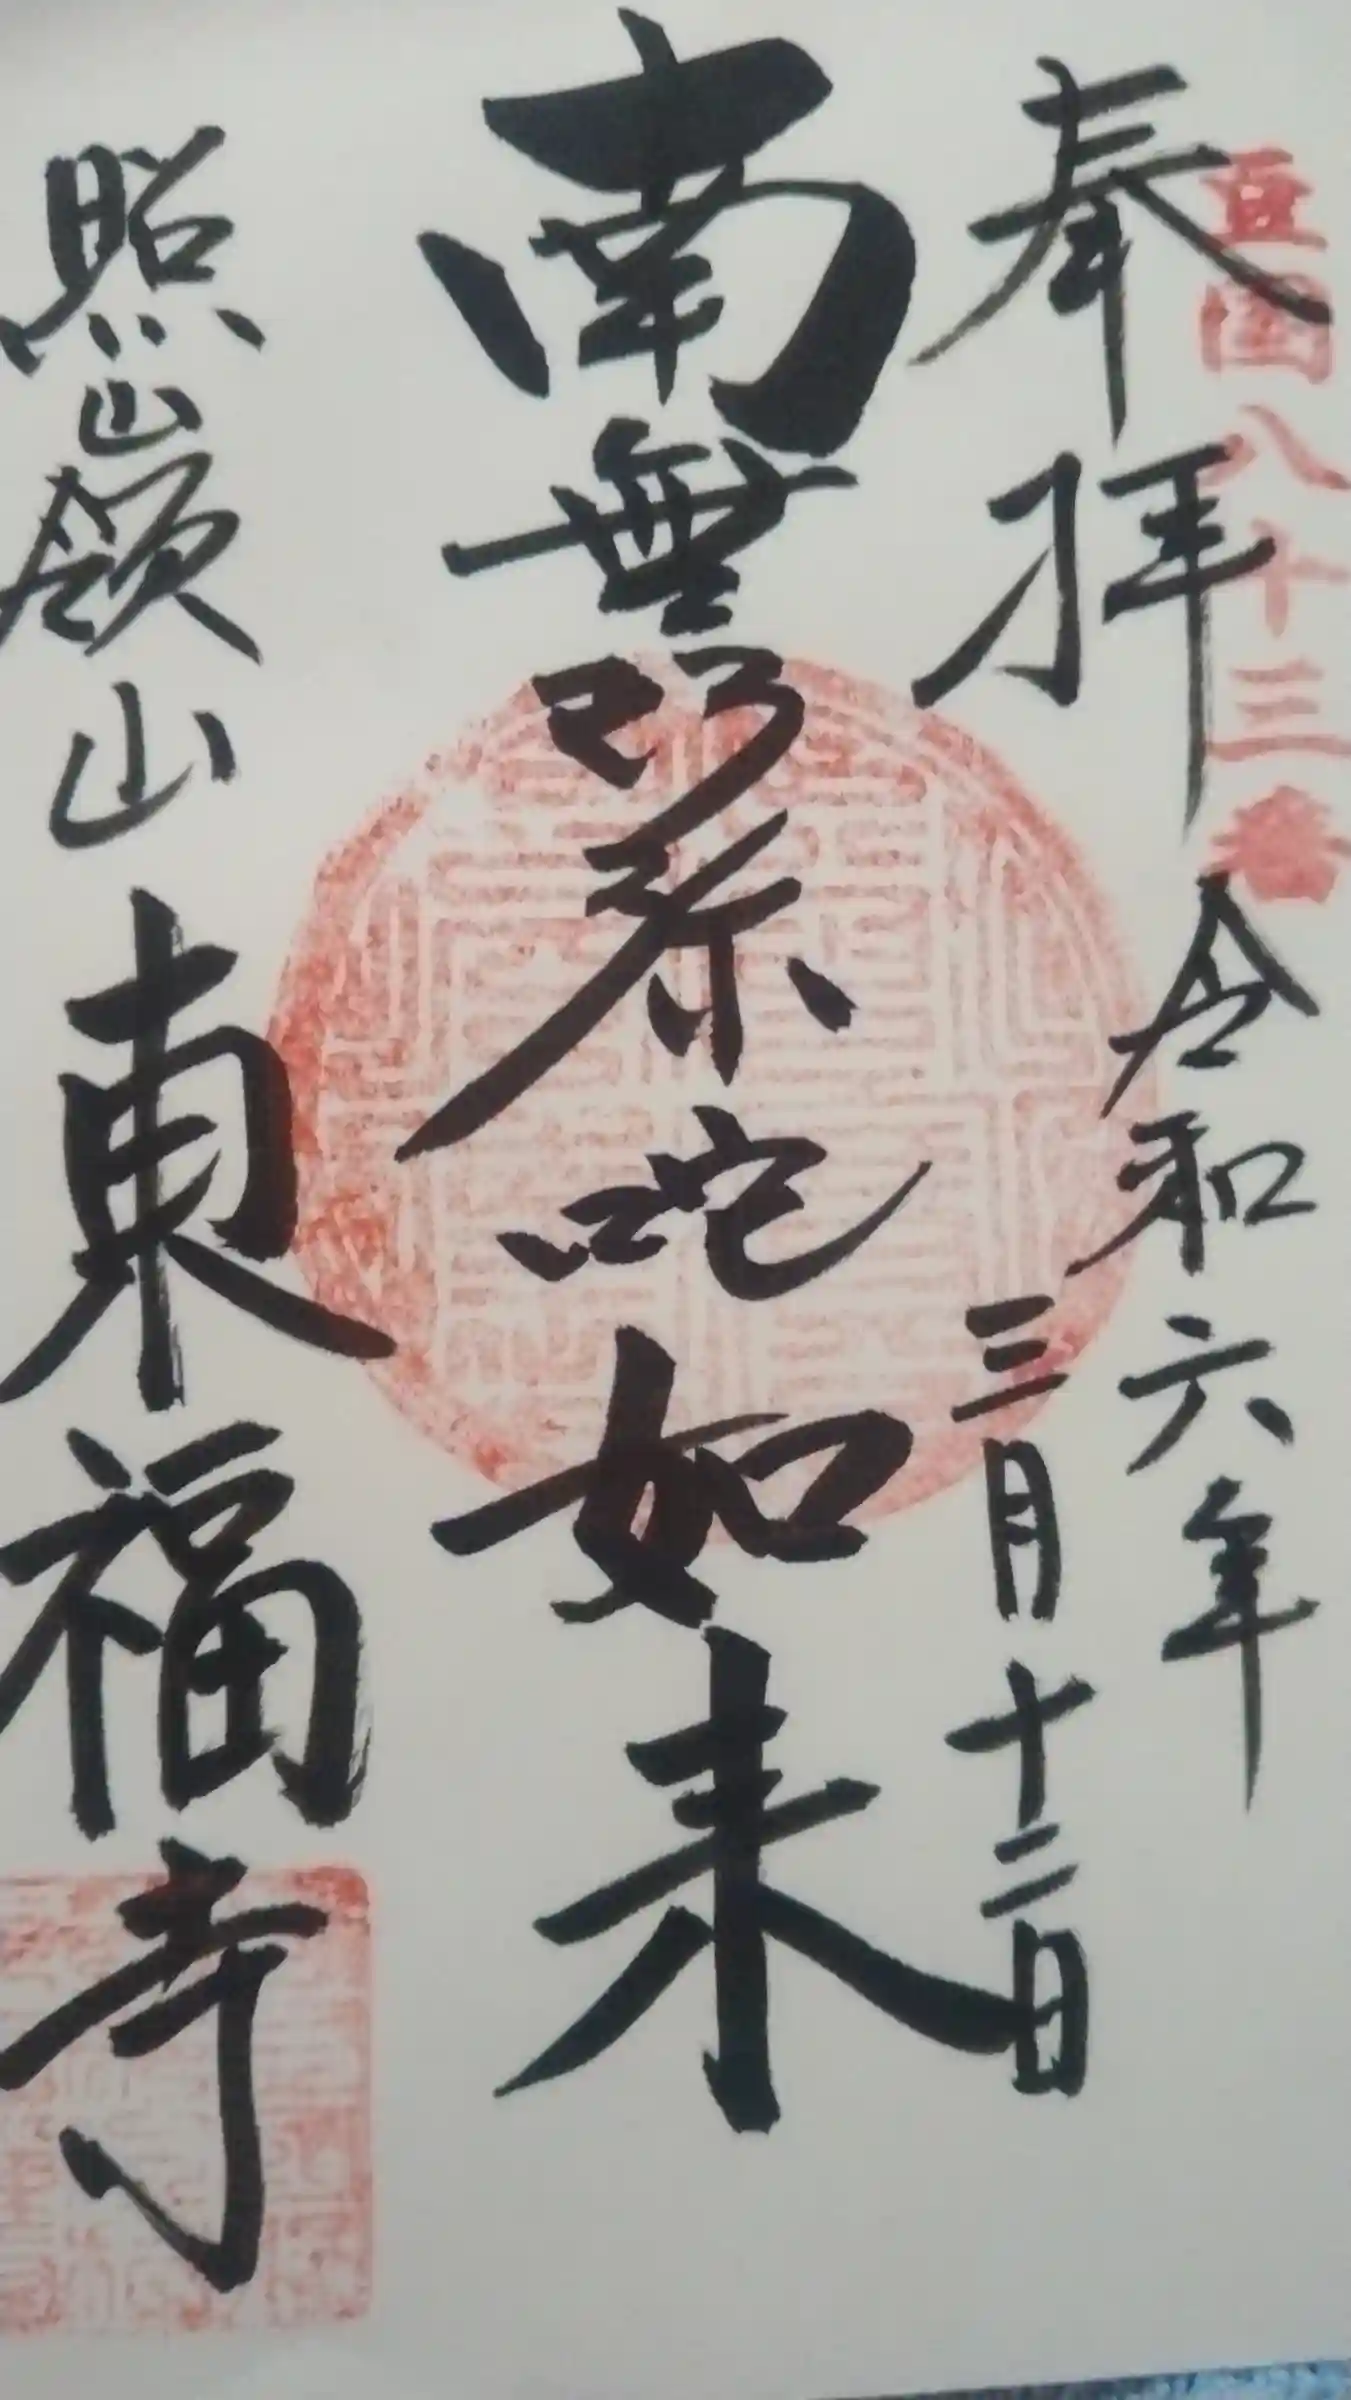 豆国八十三番
奉拝 令和六年
三月十二日
南無阿弥陀如来
照嶺山 東福寺